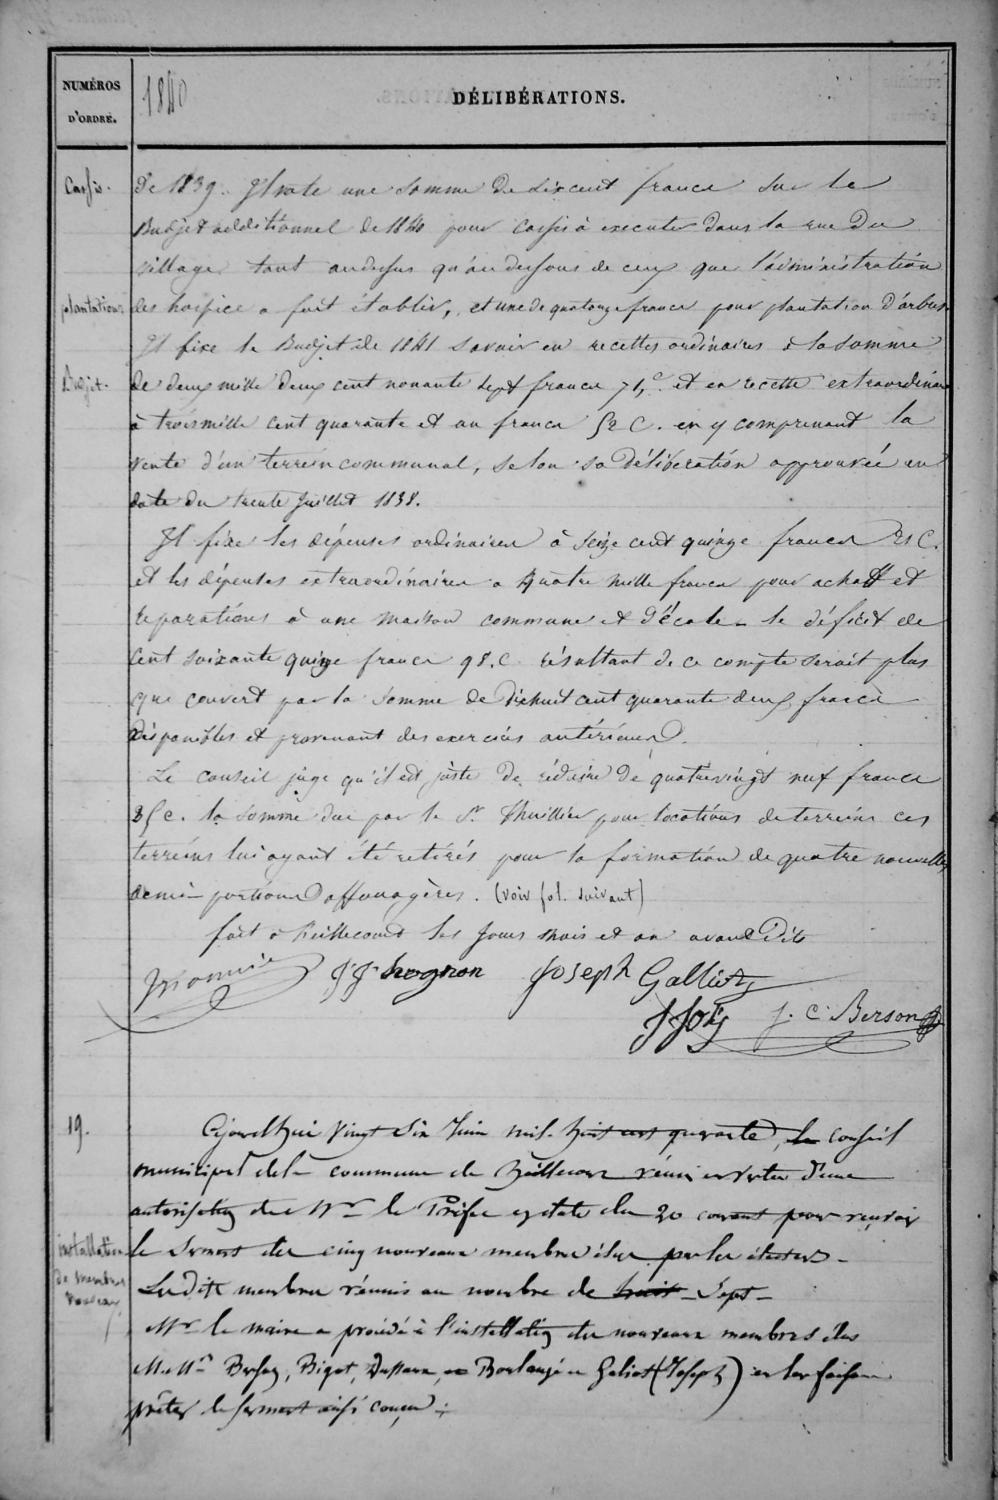 NUMÉROS
D'ORDRE.
1840
DÉLIBÉRATIONS.
Cassis.
de 1839. Il vote une somme de six cent francs sur le
Budjet additionnel de 1840 pour cassis à executer dans la rue du
village tant audessus qu'au dessous de ceux que l'administration
plantations
des hospice a fait établir, et une de quatorze francs pour plantation d'arbres
Il fixe le Budjet de 1841 savoir en recettes ordinaires à la somme
Budjet.
de deux mille deux cent nonante sept francs 71 c. et en recette extraordinaire
à trois mille cent quarante et un francs 52 C. en y comprenant la
vente d'un terrein communal, selon sa délibération approuvée en
date du trente Juillet 1838.
Il fixe les dépenses ordinaires à seize cent quinze francs 21 C.
et les dépenses extraordinaires a quatre mille francs pour achatt et
reparations à une maison commune et d'école. le déficit de
cent soixante quinze francs 98. C. résultant de ce compte serait plus
que couvert par la somme de dixhuit cent quarante deux francs
disponibles et provenant des exercices antérieurs.
Le conseil juge qu'il est juste de réduire de quatrevingt neuf francs
35 c. la somme due par le Sr. Thuillier pour locations de terreins ces
terreins lui ayant été retirés pour la formation de quatre nouvelles
demi-portions affouagères. (voir fol. suivant)
fait à les Jours mois et an avant Dits
J. J. Joseph Galliot
J. C. Berson
19.
Cejourd'hui vingt six Juin mil-huit cent quarante, le conseil
municipal de la commune de réuni en vertu d'une
autorisation de Mr le Préfet en date du 20 courant pour recevoir
installation
le serment des cinq nouveaux membres élus par les électeurs -
de membres
nouveaux
Lesdits membres réunis au nombre de huit - sept -
Mr. le maire a procédé à l'installation des nouveaux membres élus
M. Mrs Berson, Bigot, et Boulangé et Galiot (Joseph) en leur faisant
prêter le serment ainsi conçu :